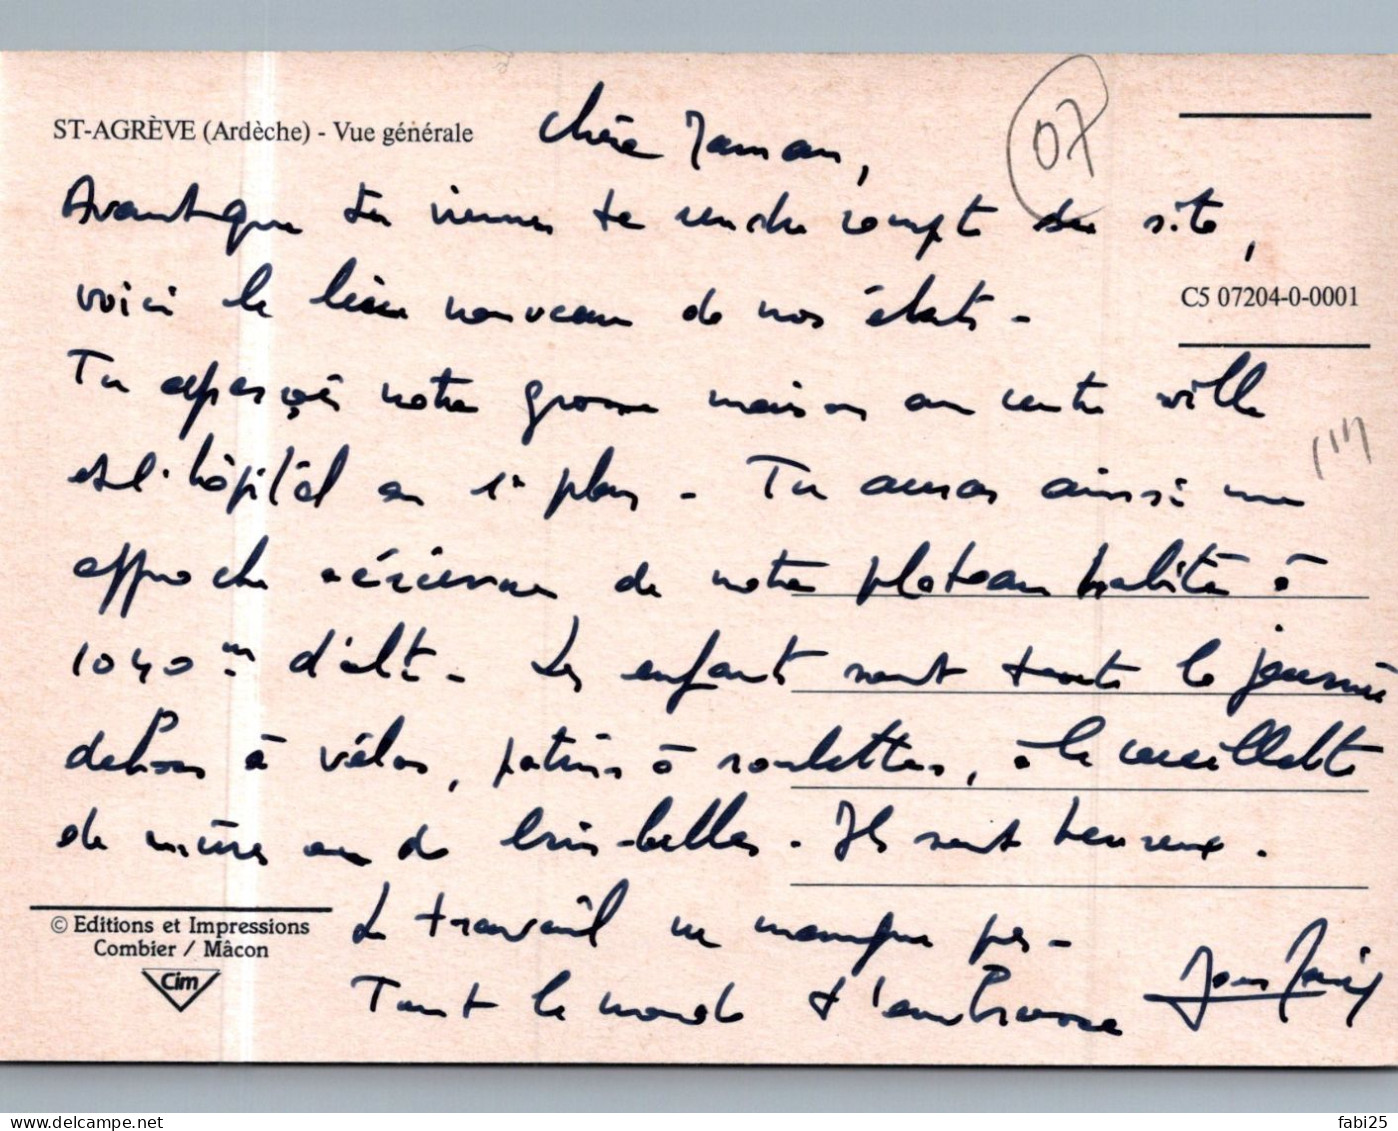 ST-AGRÈVE (Ardèche) - Vue générale
Chère Maman,
07
Avant que tu viennes te rendre compte du site,
voici le lieu nouveau de nos ébats -
C5 07204-0-0001
Tu aperçois notre grosse maison au centre ville
et l'hôpital en 1er plan - Tu auras ainsi une
approche aérienne de notre plateau habité à
1040 m d'alt - Les enfants sont toute la journée
dehors à vélos, patins à roulettes, à la cueillette
de mûres ou de brim-belles. Ils sont heureux.
Le travail ne manque pas -
Tout le monde t'embrasse
© Editions et Impressions
Combier / Mâcon
Cim
delcampe.net
fabi25